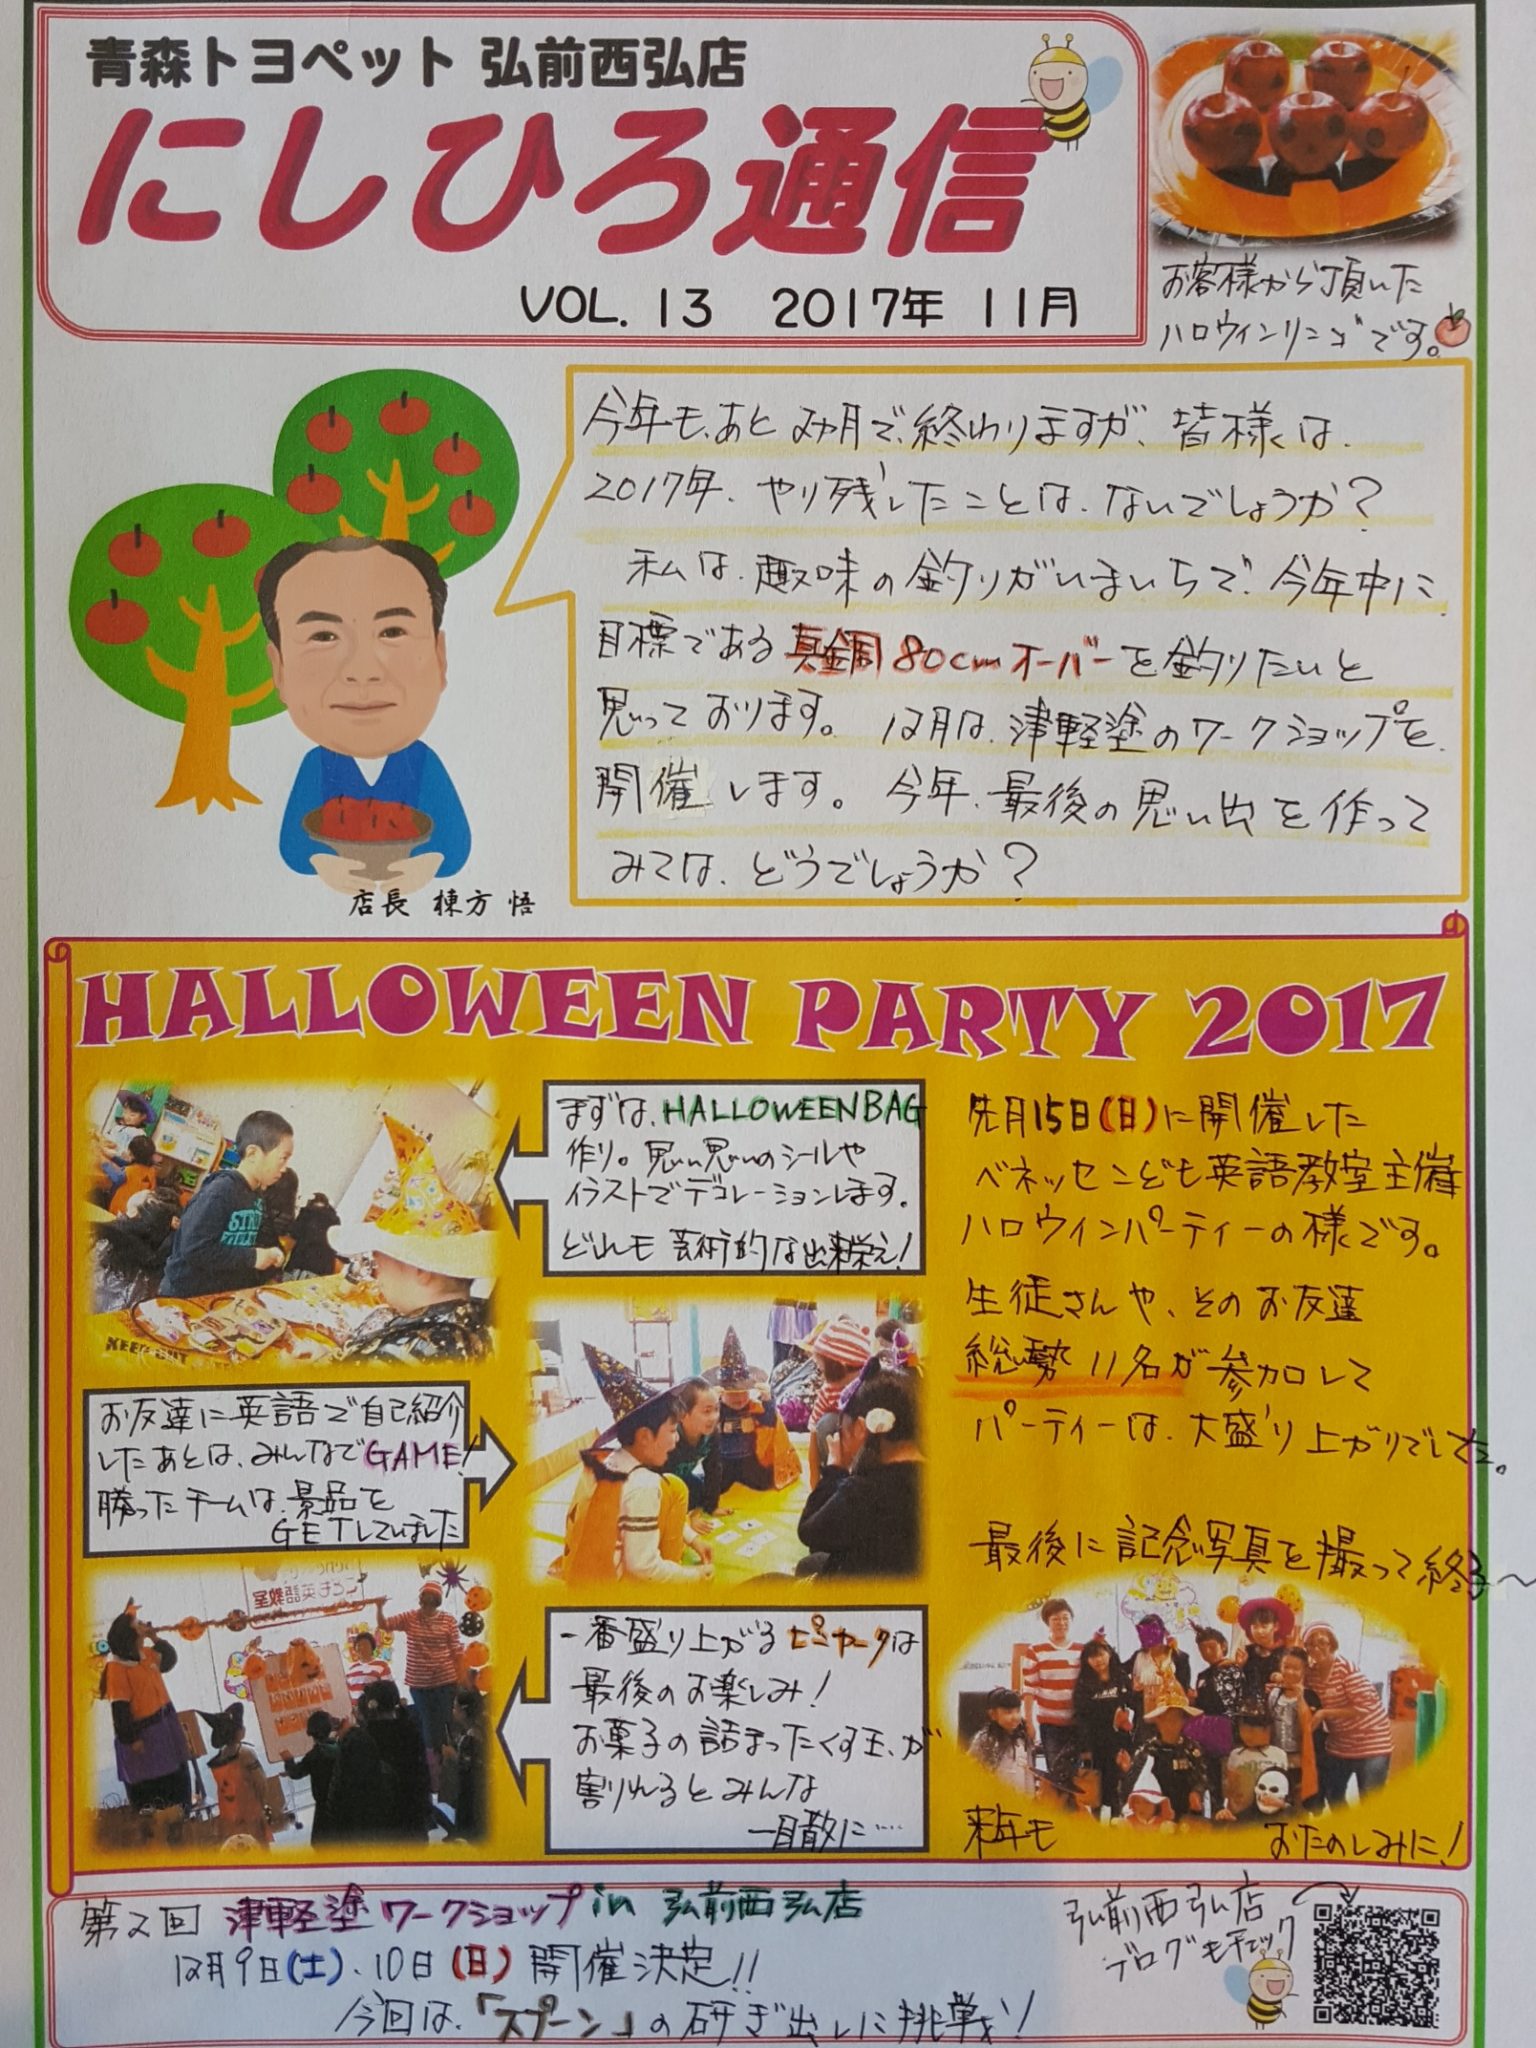 青森トヨペット 弘前西弘店
にしひろ通信
VOL. 13 2017年 11月
お客様から頂いた
ハロウィンリンゴです。
今年も、あと2ヵ月で、終わりますが、皆様は、
2017年、やり残したことは、ないでしょうか？
私は、趣味の釣りがいまいちで、今年中に
目標である真鯛80cmオーバーを釣りたいと
思っております。12月は、津軽塗のワークショップを、
開催します。今年、最後の思い出を作って
みては、どうでしょうか？
店長 棟方 悟
HALLOWEEN PARTY 2017
まずは、HALLOWEEN BAG
作り。思い思いのシールや
イラストでデコレーションします。
どれも芸術的な出来栄え！
先月15日(日)に開催した
ベネッセこども英語教室主催
ハロウィンパーティーの様です。
生徒さんや、そのお友達
総勢11名が参加して
パーティーは、大盛り上がりでした。
お友達に英語で自己紹介
したあとは、みんなでGAME！
勝ったチームは、景品を
GETしていました
最後に記念写真を撮って終了～
一番盛り上がるピニャータは
最後のお楽しみ！
お菓子の詰まったくす玉、が
割れるとみんな
一目散に……
来年も おたのしみに！
第2回 津軽塗ワークショップ in 弘前西弘店
12月9日(土)、10日(日)開催決定!!
今回は、「スプーン」の研ぎ出しに挑戦！
弘前西弘店
ブログもチェック